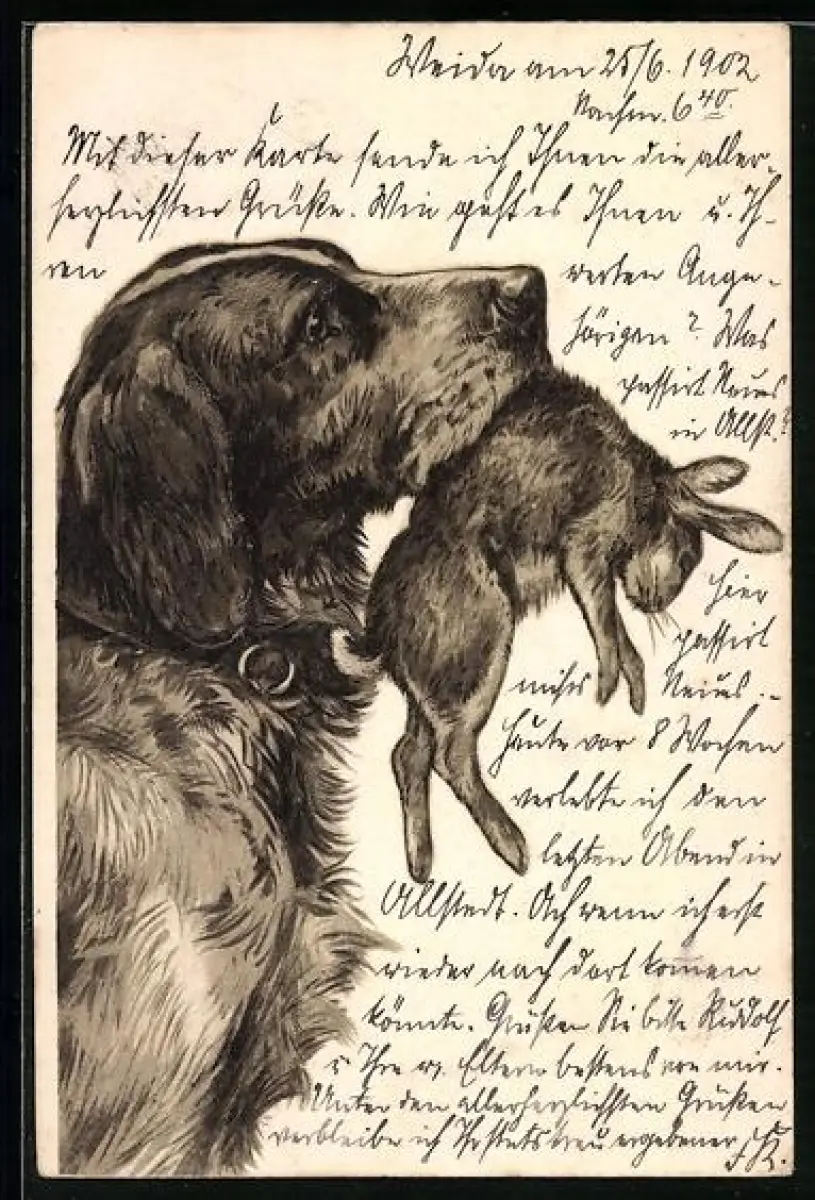 Weida am 25/6. 1902
Nachm. 6 40.
Mit dieser Karte sende ich Ihnen die aller-
herzlichsten Grüße. Wie geht es Ihnen u. Ih-
ren werten Ange-
hörigen? Was
passirt Neues
in Allst.?
Hier
passirt
nichts Neues.-
Heute vor 8 Wochen
verlebte ich den
letzten Abend in
Allstedt. Ach wenn ich erst
wieder nach dort kommen
könnte. Grüßen Sie bitte Rudolf
u. Ihre Eltern bestens von mir.
Unter den allerherzlichsten Grüßen
verbleibe ich Ihr stets treu ergebener